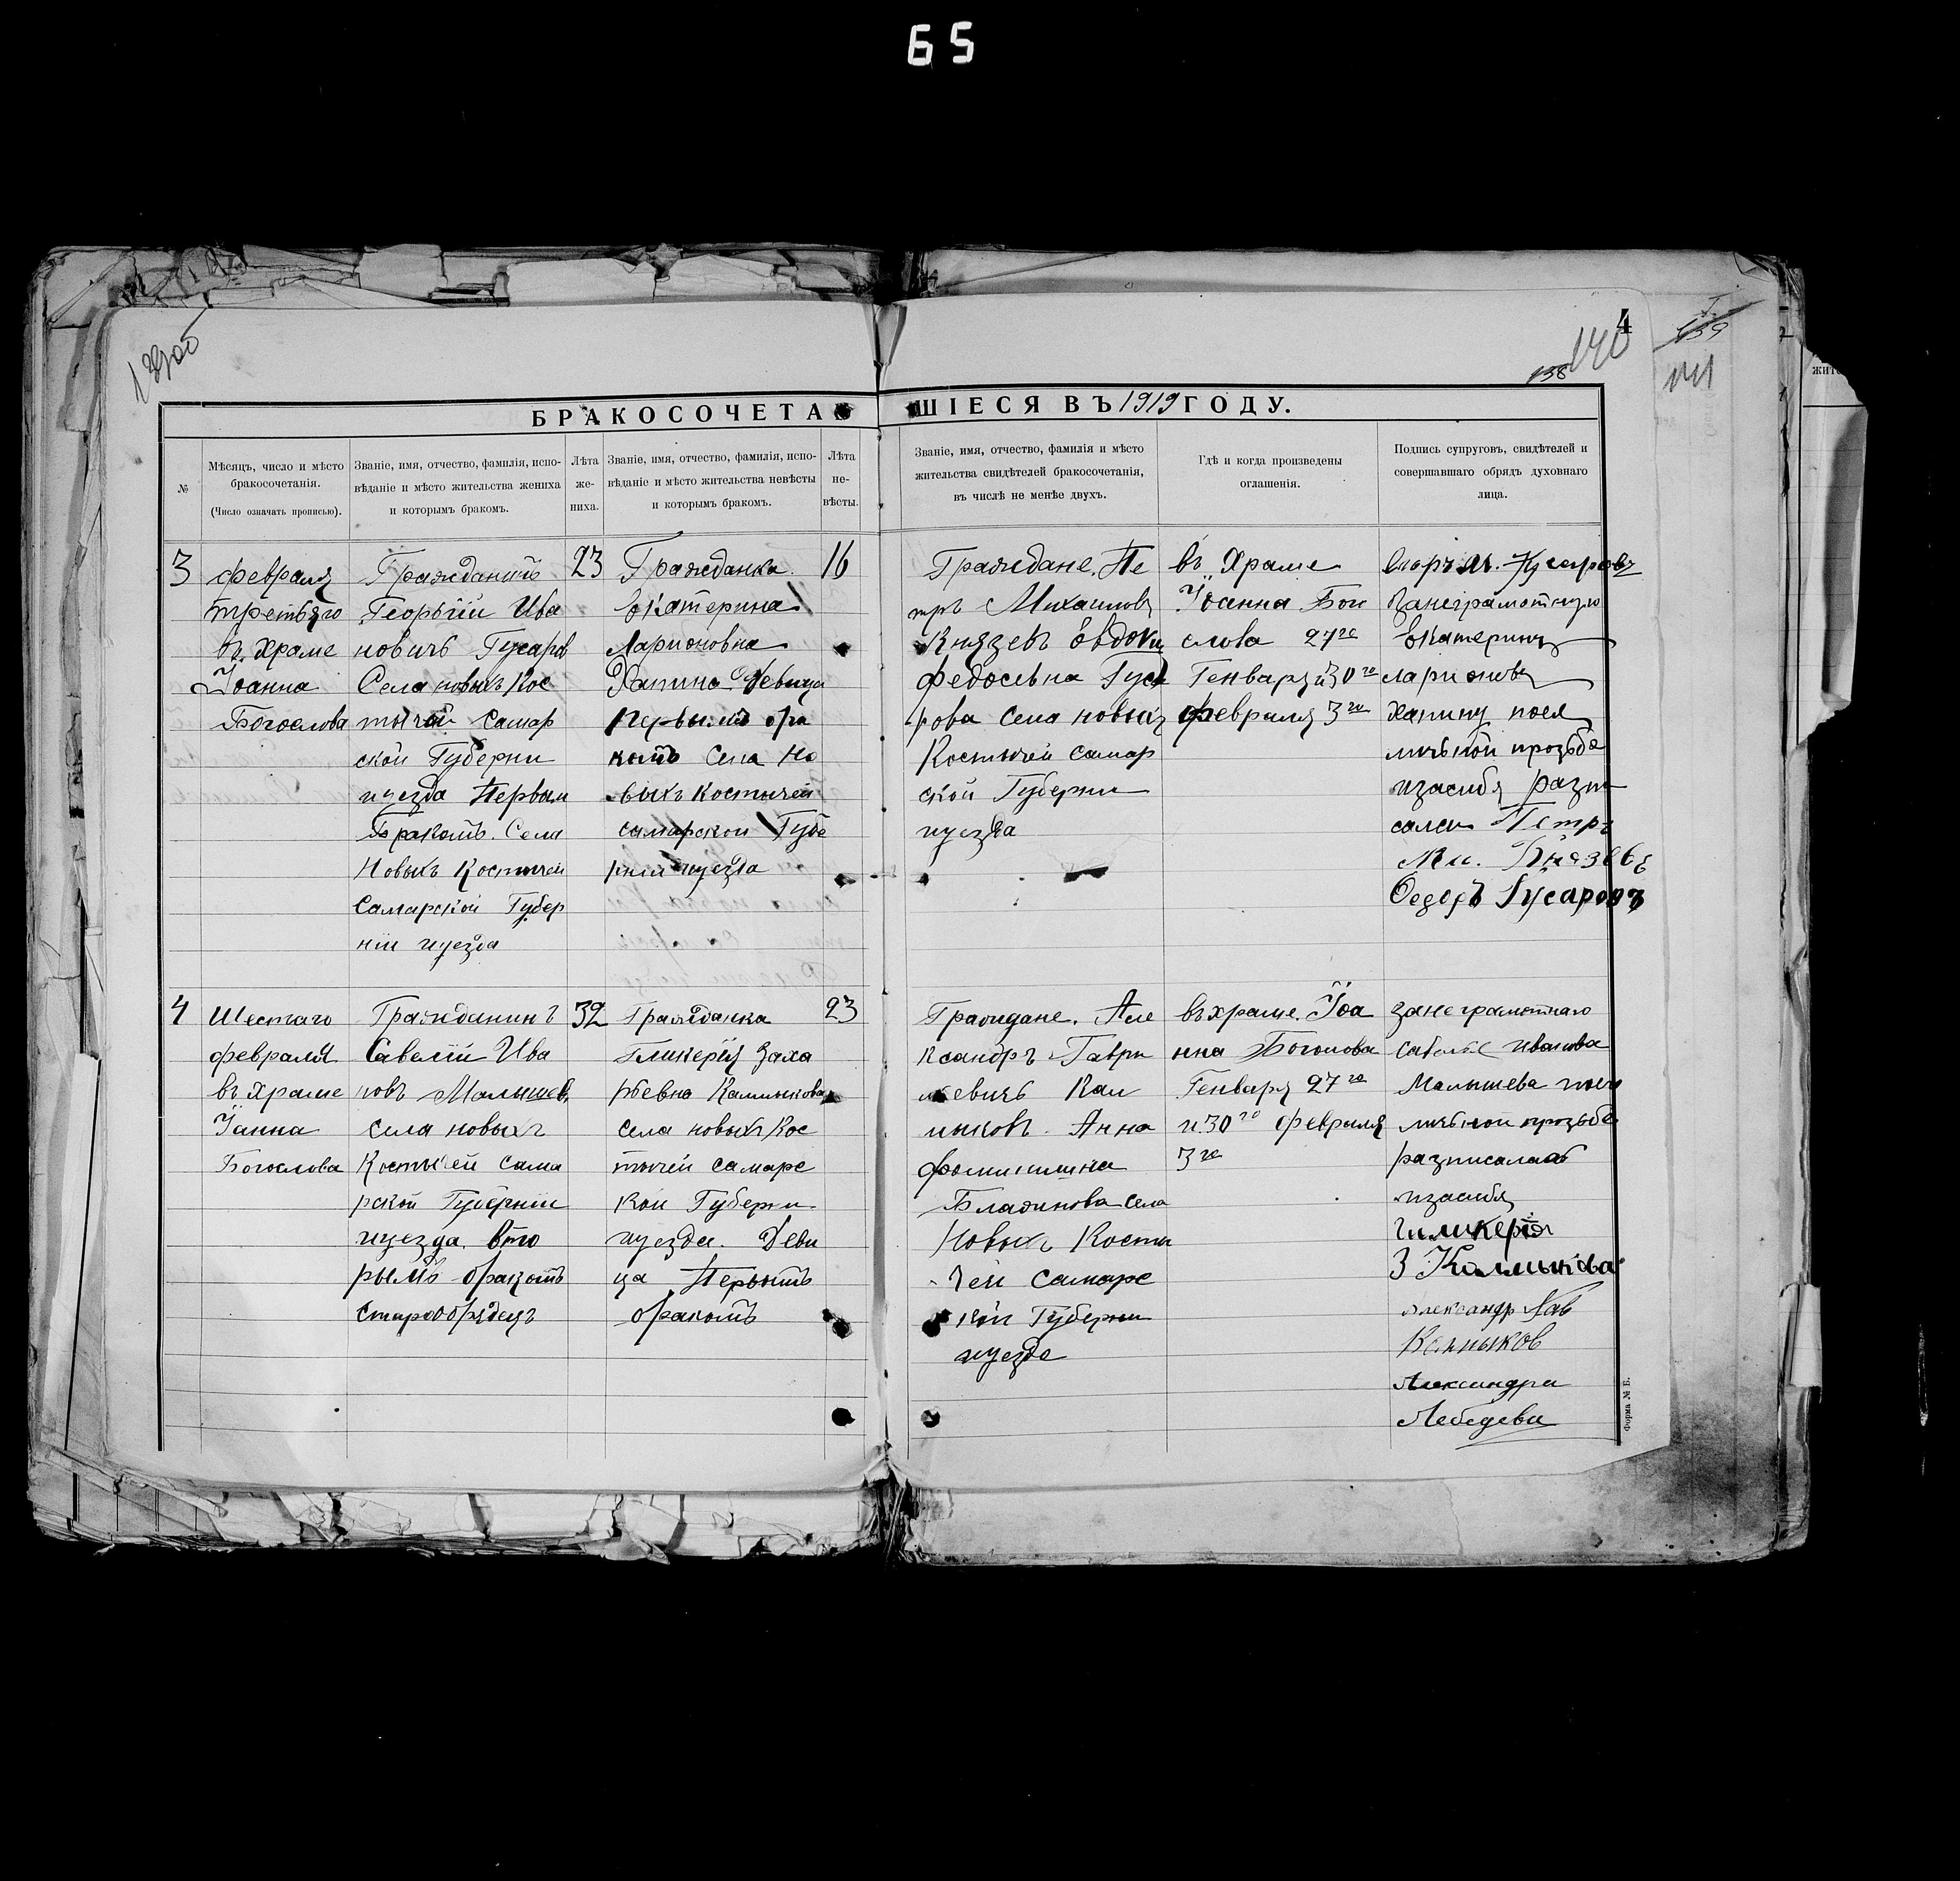 65
4
140
138
139
141
БРАКОСОЧЕТАВШІЕСЯ ВЪ 1919 ГОДУ.
№
Мѣсяцъ, число и мѣсто
бракосочетанія.
(Число означать прописью).
Званіе, имя, отчество, фамилія, испо-
вѣданіе и мѣсто жительства жениха
и которымъ бракомъ.
Лѣта
же-
ниха.
Званіе, имя, отчество, фамилія, испо-
вѣданіе и мѣсто жительства невѣсты
и которымъ бракомъ.
Лѣта
не-
вѣсты.
Званіе, имя, отчество, фамилія и мѣсто
жительства свидѣтелей бракосочетанія,
въ числѣ не менѣе двухъ.
Гдѣ и когда произведены
оглашенія.
Подпись супруговъ, свидѣтелей и
совершавшаго обрядъ духовнаго
лица.
3
февраля
третьяго
въ храме
Іоанна
Богослова
Гражданинъ
Георьгій Ива
новичъ Гусаров
Села новыхъ Кос
тычей Самар
ской Губерни
иуезда Первым
Бракомъ. Села
Новыхъ Костычей
Самарской Губер
нiи иуезда
23
Гражданка
Екатерина
Ларионовна
Хапина Девица
Первымъ бра
комъ Села Но
выхъ Костычей
самарской Губе
рнiи иуезда
16
Граждане, Пе
тръ Михаиловъ
Князевъ Евдоки
Федосевна Гуса
рова Села новыхъ
Костычей самар
ской Губерни
иуезда
въ Храме
Іоанна Бого
слова 27го
Генваря и 30го
февраля 3го
Егоръ Ив. Гусаровъ
Занеграмотную
Екатерину
ларионову
Хапину поея
личьной прозьбе
изасибя разпи
салси Петръ
Ми. Князевъ
Федоръ Гусаровъ
4
Шестаго
февраля
въ храме
Іанна
Богослова
Гражданинъ
Савелiй Ива
новъ Малышев,
села новыхъ
Костычей Сама
рской Губернiи
иуезда. вто
рымъ бракомъ
старообрядецъ
32
Гражданка
Гликерiя Заха
рьевна Калмыкова
Села новыхъ Кос
тычей самарс
кой Губерни
иуезда. Деви
ца Первымъ
бракомъ
23
Граждане. Але
ксандръ Гаври
евичь Кал
мыковъ. Анна
Села
Новыхъ Косты
чей Самарс
кой Губерни
иуезда
въ храме. Іоа
нна Богослова
Генваря 27го
и 30го февраля
3го
занеграмотнаго
Савелье Иванова
Малышева поем
личьной прозьбе
разписалась
изасибя
Гликерiя
З Калмыкова
Александр Гав
Калмыков
Александра
Лебедева
Форма № Б.